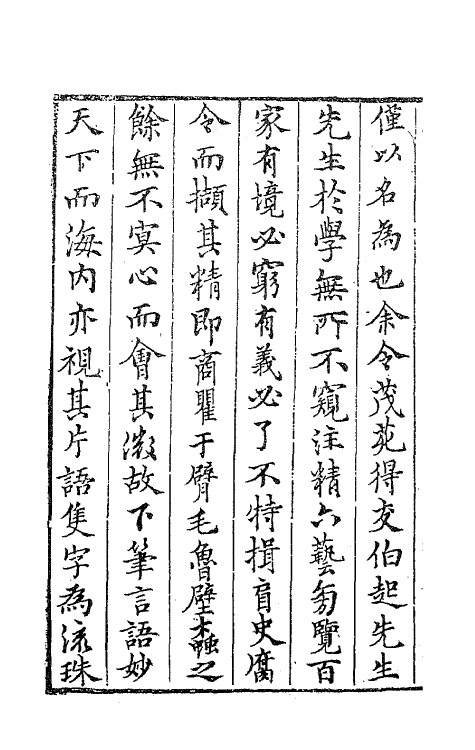 僅以名為也余令茂苑得交伯起先生
先生於學無所不窺注精六藝匇覽百
家有境必窮有義必了不特揖盲史腐
令而擷其精即商瞿于臂毛魯壁蠹之
餘無不寞心而會其微故下筆言語妙
天下而海内亦視其片語隻字為流珠